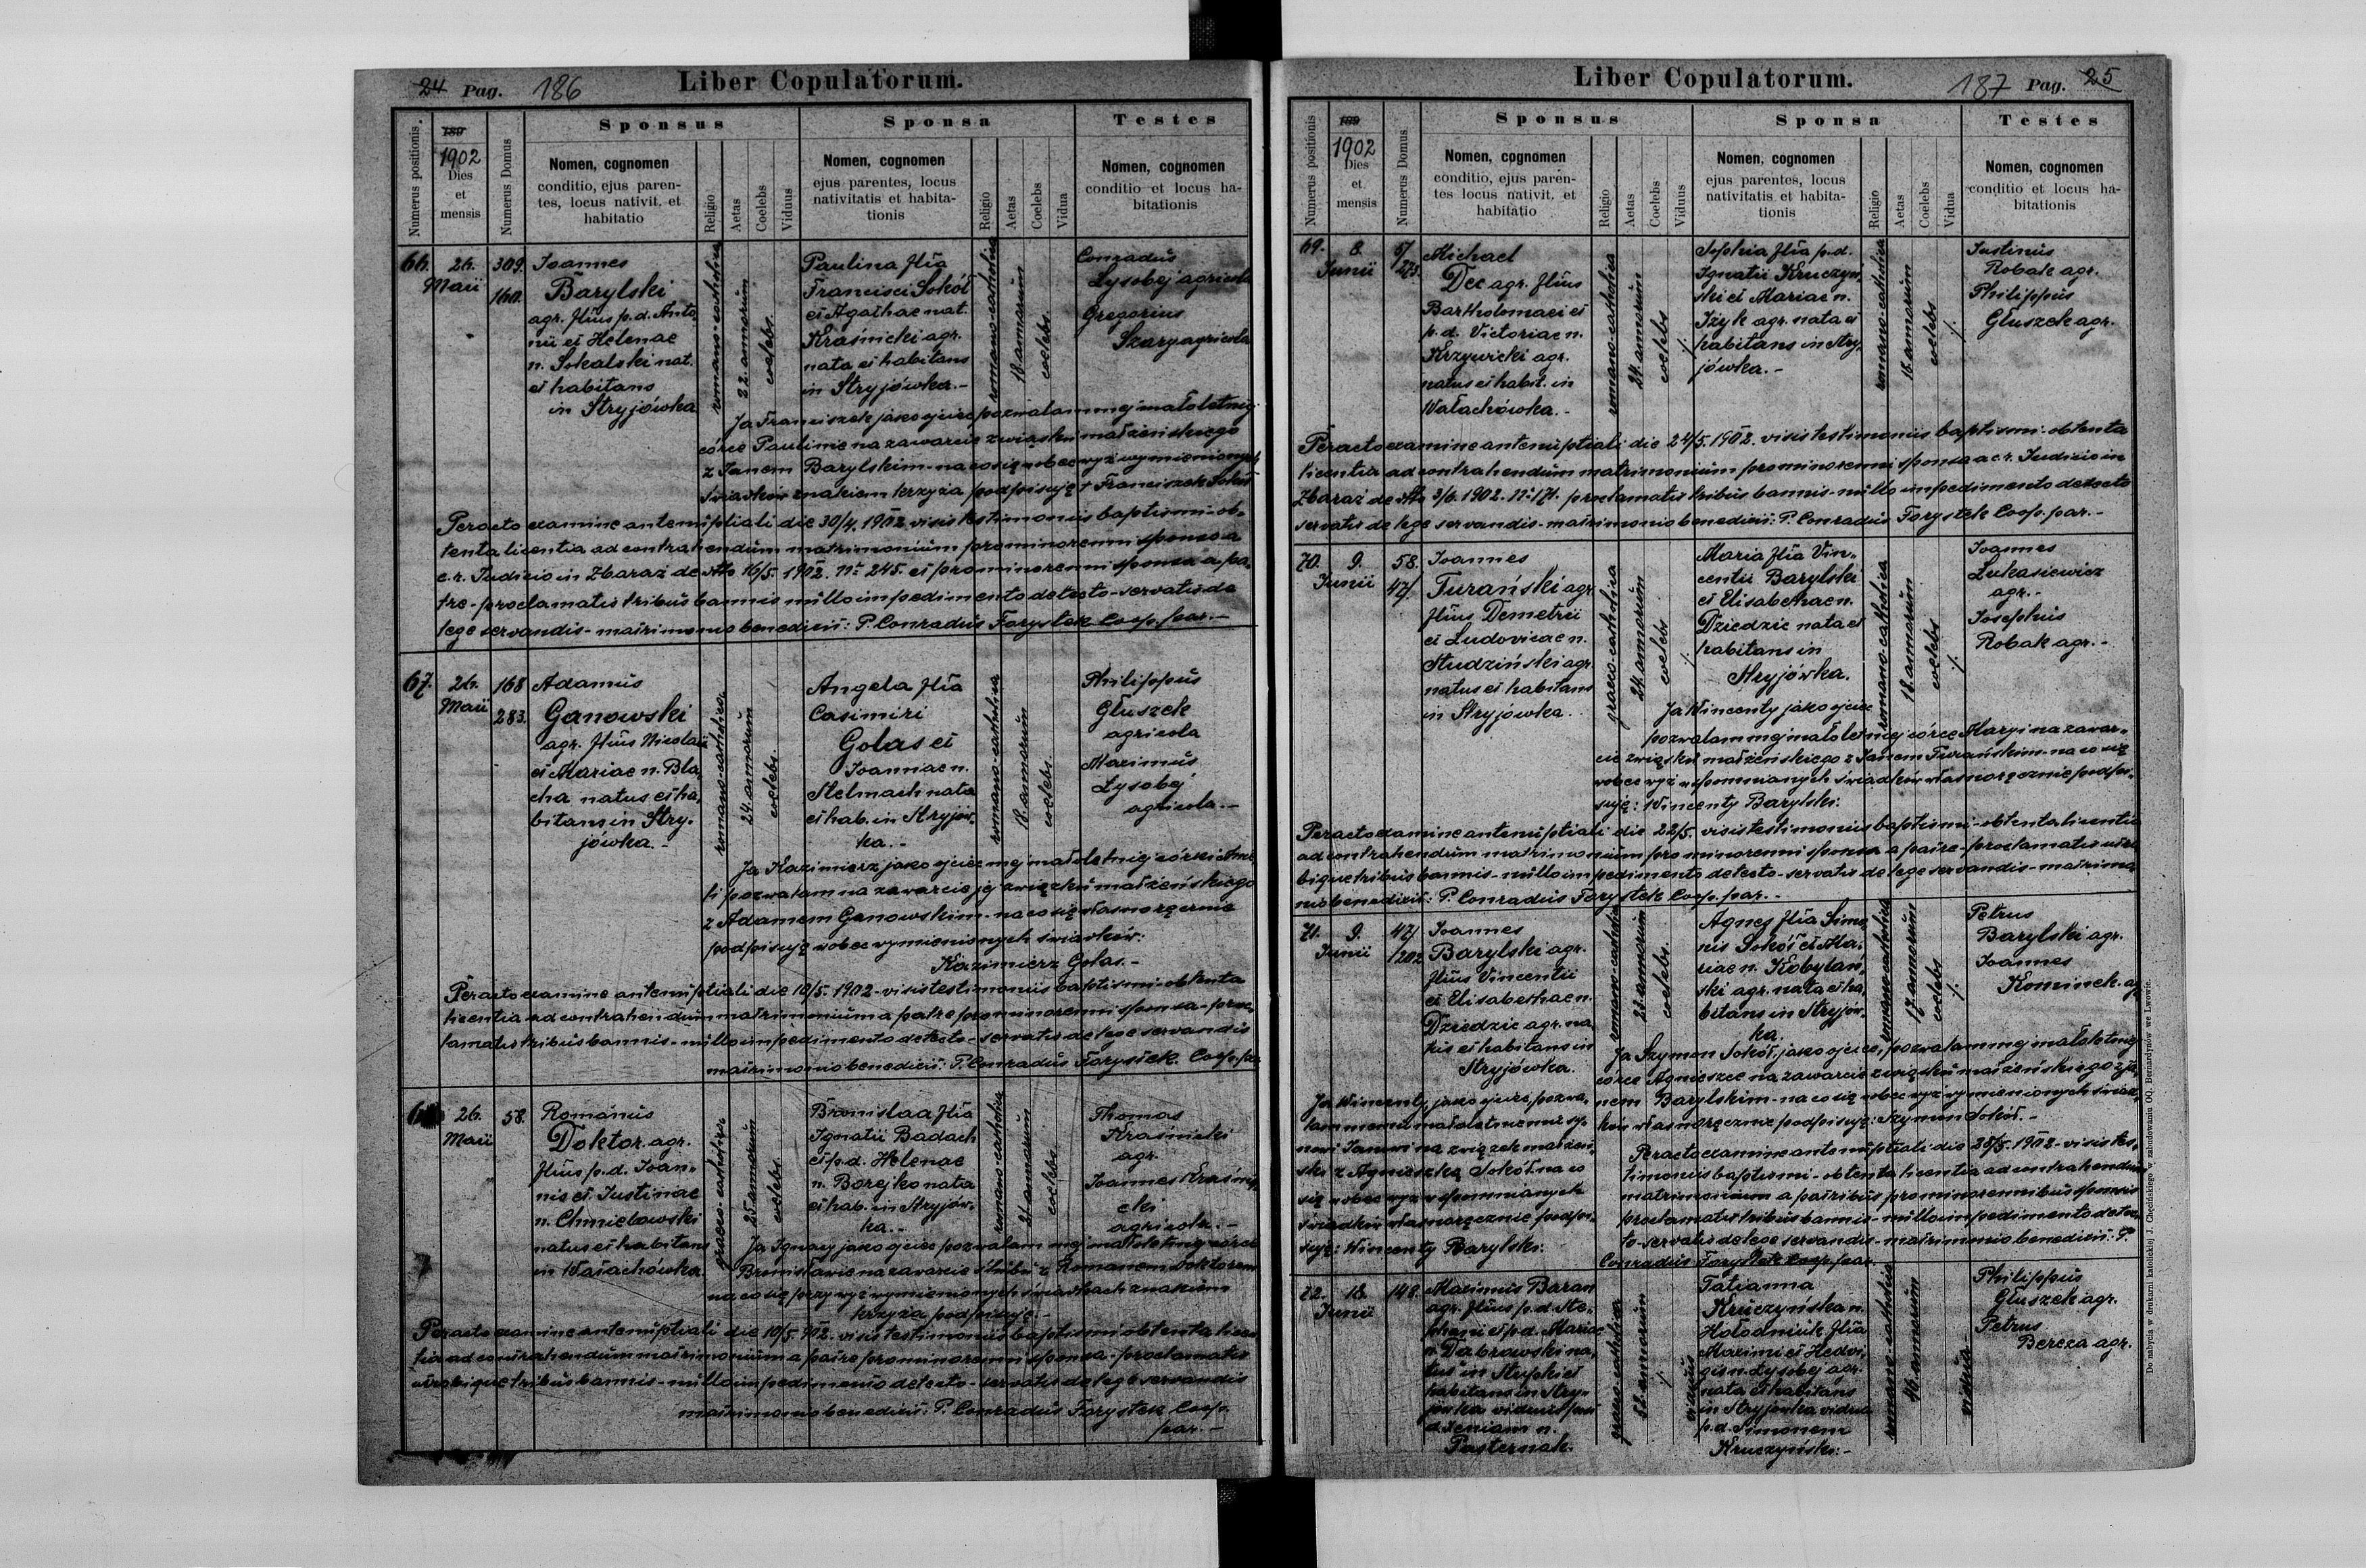 24 Pag. 186 Liber Copulatorum.
Numerus positionis.
189
1902
Dies
et
mensis
Numerus Domus
Sponsus
Nomen, cognomen
conditio, ejus paren-
tes, locus nativit. et
habitatio
Religio
Aetas
Coelebs
Viduus
Sponsa
Nomen, cognomen
ejus parentes, locus
nativitatis et habita-
tionis
Religio
Aetas
Coelebs
Vidua
Testes
Nomen, cognomen
conditio et locus ha-
bitationis
66.
26.
Maii
309.
160.
Joannes
Barylski
agr. filius p.d. Anto,
nii et Helenae
n. Sokalski nat.
et habitans
in Stryjówka
romano-catholica
22. annorum
coelebs.
Paulina filia
Francisci Sokół
et Agathae nat.
Kraśnicki agr.
nata et habitans
in Stryjówka.-
romano-catholica
18. annorum
coelebs.
Conradus
Lysobej agricola
Gregorius
Szary agricola
Ja Franciszek jako ojciec pozwalam mej małoletniej
córce Paulinie na zawarcie związku małżeńskiego
z Janem Barylskim - na co się wobec wyż wymienionych
świadków znakiem krzyża podpisuję + Franciszek Sokół
Peracto examine antenuptiali die 30/4. 1902 visis testimoniis baptismi - ob-
tenta licentia ad contrahendum matrimonium pro minorenni sponso a
c.r. Judicio in Zbaraż de dto 16/5. 1902. No 245. et pro minorenni sponsa a pa-
tre - proclamatis tribus bannis nullo impedimento detecto - servatis de
lege servandis - matrimonio benedixit: P. Conradus Forystek Coop. par.-
67.
26.
Maii
168
283.
Adamus
Ganowski
agr. filius Nicolai
et Mariae n. Bla,
cha natus et ha,
bitans in Stry,
jówka.-
romano-catholica
24. annorum
coelebs.
Angela filia
Casimiri
Golas et
Joannae n.
Stelmach nata
et hab. in Stryjów,
ka.-
romano-catholica
18. annorum
coelebs.
Philippus
Głuszek
agricola
Maximus
Lysobej
agricola.-
Ja Kazimierz jako ojciec mej małoletniej córki Anie
li pozwalam na zawarcie jej związku małżeńskiego
z Adamem Ganowskim - na co się własnoręcznie
podpisuję wobec wymienionych świadków:
Kazimierz Golas.-
Peracto examine antenuptiali die 10/5. 1902 - visis testimoniis baptismi - obtenta
licentia ad contrahendum matrimonium a patre pro minorenni sponsa - proc,
lamatis tribus bannis - nullo impedimento detecto - servatis de lege servandis
matrimonio benedixit: P. Conradus Forystek Coop. par
26.
Maii
58.
Romanus
Doktor agr.
filius p.d. Joan,
nis et Justinae
n. Chmielowski
natus et habitans
in Wałachówka.
graeco-catholica
25 annorum
coelebs.
Bronislaa filia
Ignatii Badach
et p.d. Helenae
n. Borejko nata
et hab. in Stryjów,
ka.-
romano-catholica
21. annorum
coelebs
Thomas
Kraśnicki
agr.
Joannes Kraśni
cki
agricola.-
Ja Ignacy jako ojciec pozwalam mej małoletniej córce
Bronisławie na zawarcie ślubu z Romanem Doktorem
na co się przy wyż wymienionych świadkach znakiem
krzyża podpisuję.-
Peracto examine antenuptiali die 10/5. 902. visis testimoniis baptismi obtenta licen
tia ad contrahendum matrimonium a patre pro minorenni sponsa - proclamatis
utrobique tribus bannis - nullo impedimento detecto - servatis de lege servandis
matrimonio benedixit: P. Conradus Forystek Coop.
par.-
Liber Copulatorum. 187 Pag. 25
Numerus positionis
189
1902
Dies
et
mensis
Numerus Domus
Sponsus
Nomen, cognomen
conditio, ejus paren-
tes locus nativit. et
habitatio
Religio
Aetas
Coelebs
Viduus
Sponsa
Nomen, cognomen
ejus parentes, locus
nativitatis et habita-
tionis
Religio
Aetas
Coelebs
Vidua
Testes
Nomen, cognomen
conditio et locus ha-
bitationis
69.
8.
Junii
5/
273.
Michael
Dec agr. filius
Bartholomaei et
p.d. Victoriae n.
Krzywicki agr.
natus et habit. in
Wałachówka.-
romano-catholica
24. annorum
coelebs
Sophia filia p.d.
Ignatii Kruczyń,
ski et Mariae n.
Iżyk agr. nata et
habitans in Stry,
jówka.-
romano-catholica
16. annorum
coelebs
Justinus
Robak agr.
Philippus
Głuszek agr.
Peracto examine antenuptiali die 24/5. 1902. visis testimoniis baptismi - obtenta
licentia ad contrahendum matrimonium pro minorenni sponsa a c.r. Judicio in
Zbaraż de dto 3/6. 1902. No 171. proclamatis tribus bannis - nullo impedimento detecto
servatis de lege servandis - matrimonio benedixit: P. Conradus Forystek Coop. par.-
70.
9.
Junii
58.
47/
Joannes
Turański agr.
filius Demetrii
et Ludovicae n.
Studziński agr.
natus et habitans
in Stryjówka.
graeco-catholica
24. annorum
coelebs
Maria filia Vin,
centii Barylski
et Elisabethae n.
Dziedzic nata et
habitans in
Stryjówka.
romano-catholica
18. annorum
coelebs
Joannes
Lukasiewicz
agr.-
Josephus
Robak agr.-
Ja Wincenty jako ojciec
pozwalam mej małoletniej córce Maryi na zawar,
cie związku małżeńskiego z Janem Turańskim - na co się
wobec wyż wspomnianych świadków własnoręcznie podpi,
suję: Wincenty Barylski.
Peracto examine antenuptiali die 22/5. visis testimoniis baptismi - obtenta licentia
ad contrahendum matrimonium pro minorenni sponsa a patre - proclamatis utro
bique tribus bannis - nullo impedimento detecto - servatis de lege servandis - matrimo,
nio benedixit: P. Conradus Forystek Coop. par.-
71.
9.
Junii
47/
1202
Joannes
Barylski agr.
filius Vincentii
et Elisabethae n.
Dziedzic agr. na,
tus et habitans in
Stryjówka.
romano-catholica
annorum
coelebs.
Agnes filia Simo,
nis Sokół et Ma,
riae n. Kobylań,
ski agr. nata et ha,
bitans in Stryjów,
ka.
romano-catholica
17. annorum
coelebs
Petrus
Barylski agr.
Joannes
Kominek. ag
Ja Szymon Sokół, jako ojciec, pozwalam mej małoletniej
córce Agnieszce na zawarcie związku małżeńskiego z Ja,
nem Barylskim - na co się wobec wyż wymienionych świad,
ków własnoręcznie podpisuję: Szymon Sokół.-
Ja Wincenty, jako ojciec, pozwa,
lam memu małoletniemu sy,
nowi Janowi na związek małżeń,
ski z Agnieszką Sokół na co
się wobec wyż wspomnianych
świadków własnoręcznie podpi,
suję: Wincenty Barylski.
Peracto examine antenuptiali die 28/5. 1902 - visis tes,
timoniis baptismi - obtenta licentia ad contrahendum
matrimonium a patribus pro minorennibus sponsis
proclamatis tribus bannis - nullo impedimento detec,
to - servatis de lege servandis - matrimonio benedixit: P.
Conradus Forystek Coop. par.
72.
18.
Junii
148.
Maximus Baran
agr. filius p.d. Ste,
phani et p.d. Mariae
n. Dabrowski na,
tus in Stupki et
habitans in Stry,
jówka viduus post
d. Xeniam n.
Pasternak.
graeco-catholica
52. annorum
viduus
Tatianna
Kruczyńska n.
Hołodniuk filia
Maximi et Hedvi,
gis n. Lysobej agr.
nata et habitans
in Stryjówka vidua
p.d. Simonem
Kruczyński.-
romano-catholica
46. annorum
vidua
Philippus
Głuszek agr.
Petrus
Bereza agr.
Do nabycia w drukarni katolickiej J. Chęcińskiego w zabudowaniu OO. Bernardynów we Lwowie.